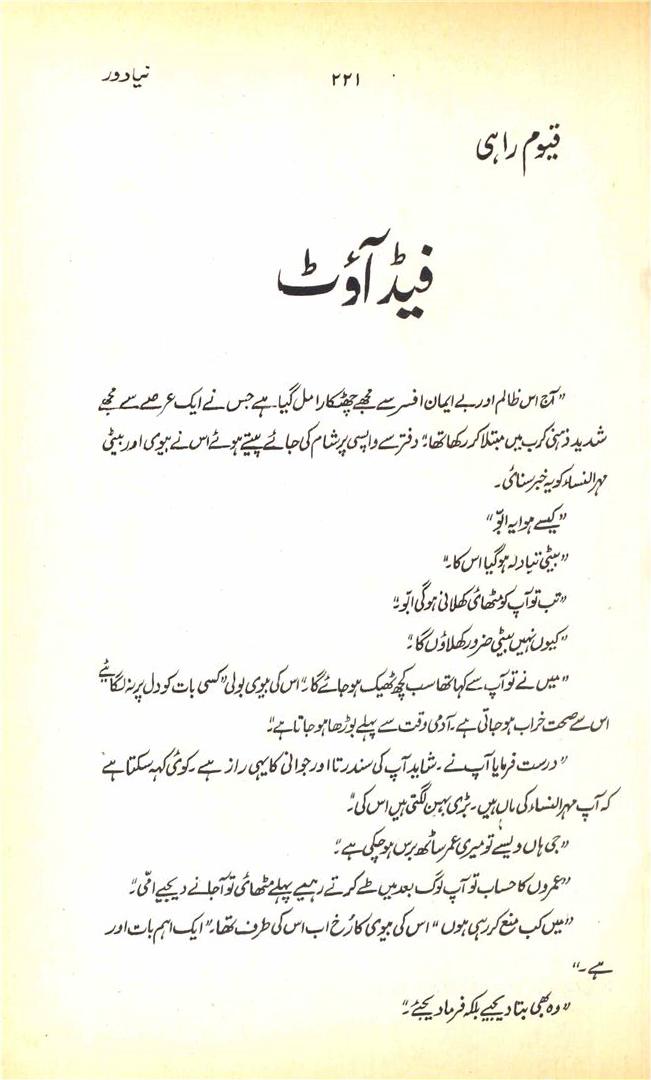 نیا دور
۲۲۱
قیوم راہی
فیڈ آؤٹ
”آج اس ظالم اور بے ایمان افسر سے مجھے چھٹکارا مل گیا ہے جس نے ایک عرصے سے مجھے
شدید ذہنی کرب میں مبتلا کر رکھا تھا۔“ دفتر سے واپسی پر شام کی چائے پیتے ہوئے اس نے بیوی اور بیٹی
مہرالنساء کو یہ خبر سنائی۔
”کیسے ہوا یہ ابّو“
”بیٹی تبادلہ ہو گیا اس کا۔“
”تب تو آپ کو مٹھائی کھلانی ہوگی ابّو۔“
”کیوں نہیں بیٹی ضرور کھلاؤں گا۔“
”میں نے تو آپ سے کہا تھا سب کچھ ٹھیک ہو جائے گا۔“ اس کی بیوی بولی ”کسی بات کو دل پر نہ لگائیے
اس سے صحت خراب ہو جاتی ہے۔ آدمی وقت سے پہلے بوڑھا ہو جاتا ہے۔“
”درست فرمایا آپ نے۔ شاید آپ کی سندرتا اور جوانی کا یہی راز ہے۔ کوئی کہہ سکتا ہے
کہ آپ مہرالنساء کی ماں ہیں۔ بڑی بہن لگتی ہیں اس کی۔“
”جی ہاں ویسے تو میری عمر ساٹھ برس ہو چکی ہے۔“
”عمروں کا حساب تو آپ لوگ بعد میں طے کرتے رہیے پہلے مٹھائی تو آجانے دیجیے امّی۔“
”میں کب منع کر رہی ہوں“ اس کی بیوی کا رُخ اب اس کی طرف تھا۔ ”ایک اہم بات اور
ہے۔“
”وہ بھی بتا دیجیے بلکہ فرما دیجئے۔“